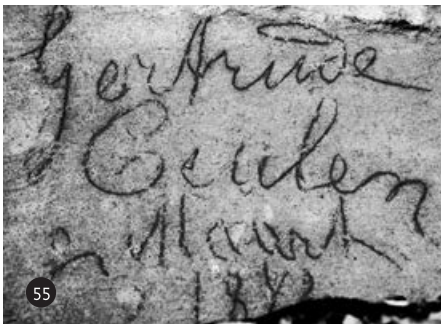 Gertrude
Ceulen
2 Maart
55